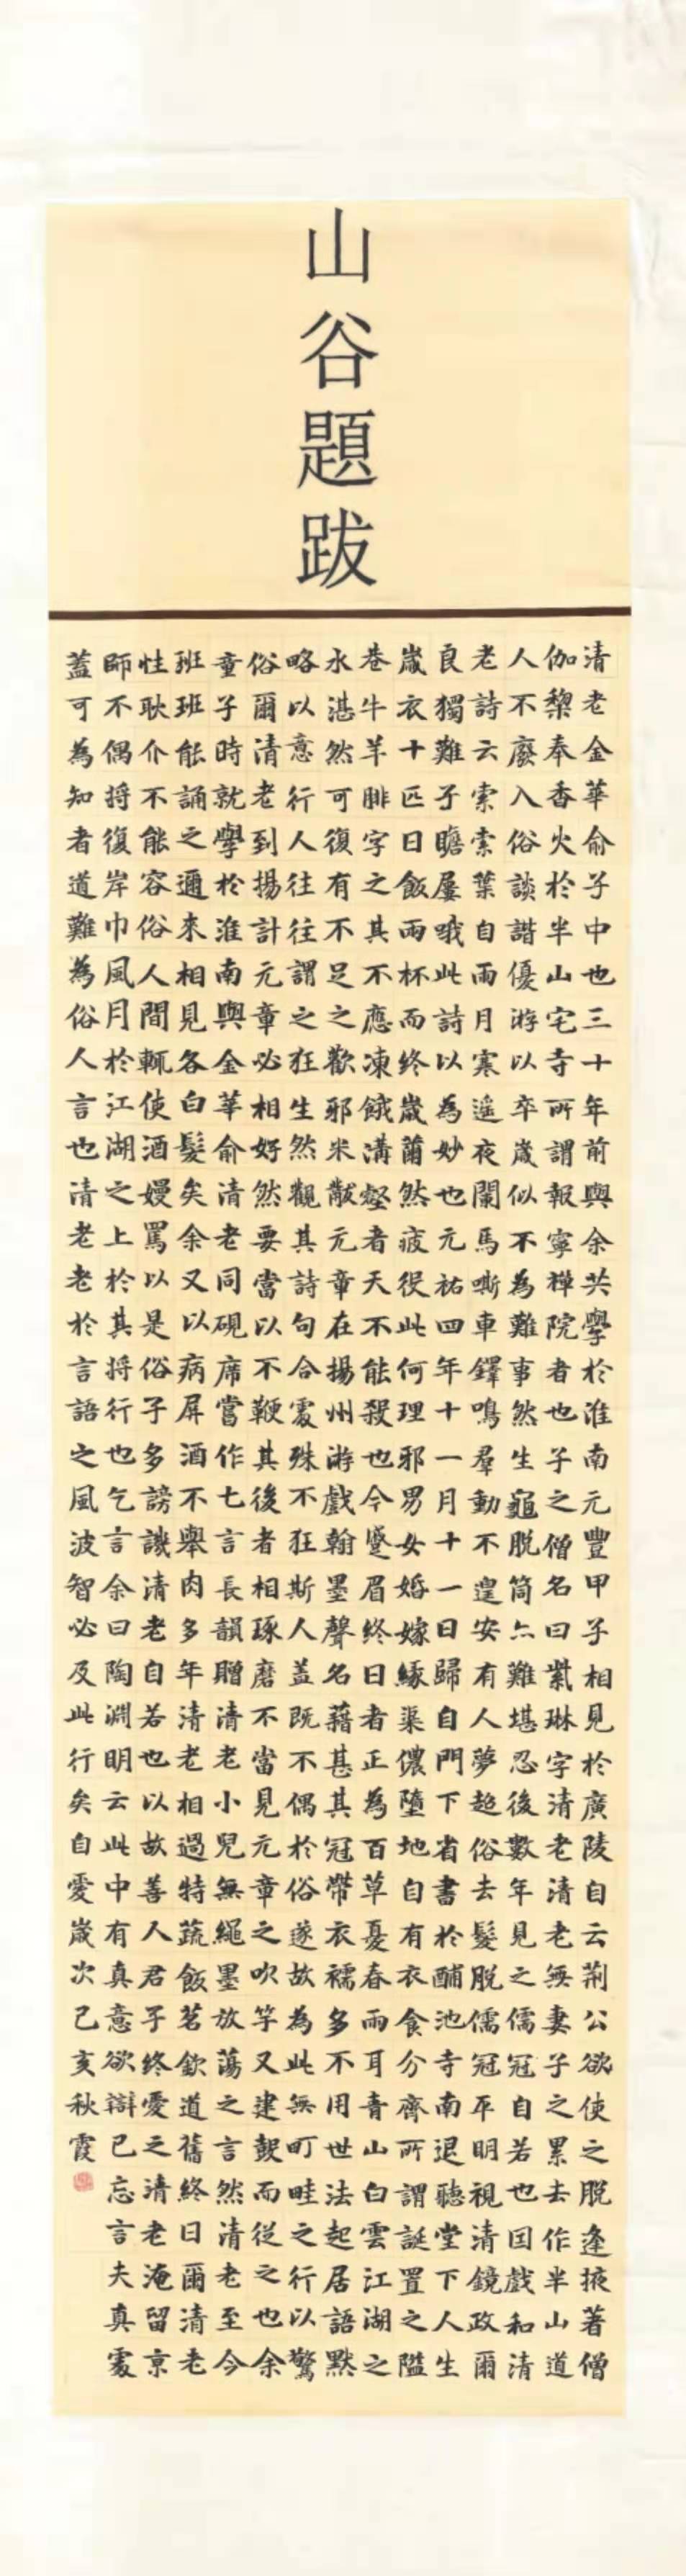 山谷題跋
清老金華俞子中也三十年前與余共學於淮南元豐甲子相見於廣陵自云荆公欲使之脫逢掖著僧
伽黎奉香火於半山宅寺所謂報寧禅院者也子之僧名曰紫琳字清老清老無妻子之累去作半山道
人不廢入俗談諧優游以卒歲似不為難事然生龜脫筒亦難堪忍後數年見之儒冠自若也因戲和清
老詩云索索葉自雨月寒遥夜闌馬嘶車鐸鳴羣動不遑安有人夢超俗去髮脫儒冠平明視清鏡政爾
良獨難子瞻屢哦此詩以為妙也元祐四年十一月十一日歸自門下省書於酺池寺南退聽堂下人生
歲衣十匹日飯兩杯而終歲薾然疲役此何理邪男女婚嫁緣渠儂墮地自有衣食分齊所謂誕置之隘
巷牛羊腓字之其不應凍餓溝壑者天不能殺也今蹙眉終日者正為百草憂春雨耳青山白雲江湖之
水湛然可復有不足之歡邪米黻元章在揚州游戲翰墨聲名藉甚其冠帶衣襦多不用世法起居語默
略以意行人往往謂之狂生然觀其詩句合處殊不狂斯人盖既不偶於俗遂故為此無町畦之行以驚
俗爾清老到揚計元章必相好然要當以不鞭其後者相琢磨不當見元章之吹竽又建鼓而從之也余
童子時就學於淮南與金華俞清老同硯席嘗作七言長韻贈清老小兒無繩墨放蕩之言然清老至今
班班能誦之邇來相見各白髮矣余又以病屏酒不舉肉多年清老相過特蔬飯茗飲道舊終日爾清老
性耿介不能容俗人間輒使酒嫚罵以是俗子多謗譏清老自若也以故善人君子終愛之清老淹留京
師不偶將復岸巾風月於江湖之上於其將行也乞言余曰陶淵明云此中有真意欲辯已忘言夫真處
蓋可為知者道難為俗人言也清老老於言語之風波智必及此行矣自愛歲次己亥秋霞